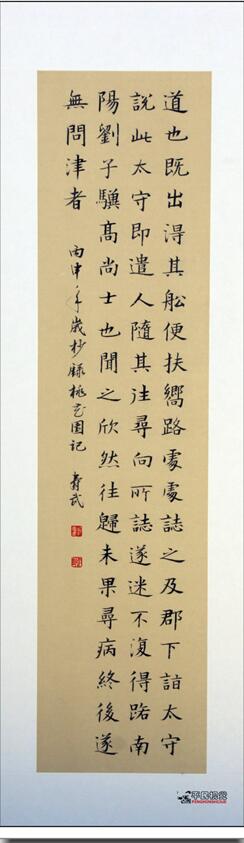 道也既出得其舩便扶嚮路處處誌之及郡下詣太守
說此太守即遣人隨其往尋向所誌遂迷不復得路南
陽劉子驥髙尚士也聞之欣然往歸未果尋病終後遂
無問津者
丙申年歲杪錄桃花園記 壽武
平民松炎